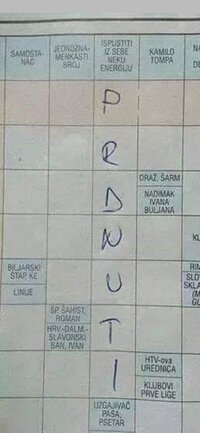 SAMOSTA-
NAC
JEDNOZNA-
MENKASTI
BROJ
ISPUSTITI
IZ SEBE
NEKU
ENERGIJU
KAMILO
TOMPA
P
R
D
N
U
T
I
DRAŽ, ŠARM
NADIMAK
IVANA
BULJANA
BILJARSKI
ŠTAP, KE
LINIJE
ŠP. ŠAHIST,
ROMAN
HRV.-DALM.-
SLAVONSKI
BAN, IVAN
HTV-ova
UREDNICA
KLUBOVI
PRVE LIGE
UZGAJIVAČ
PASA,
PSETAR